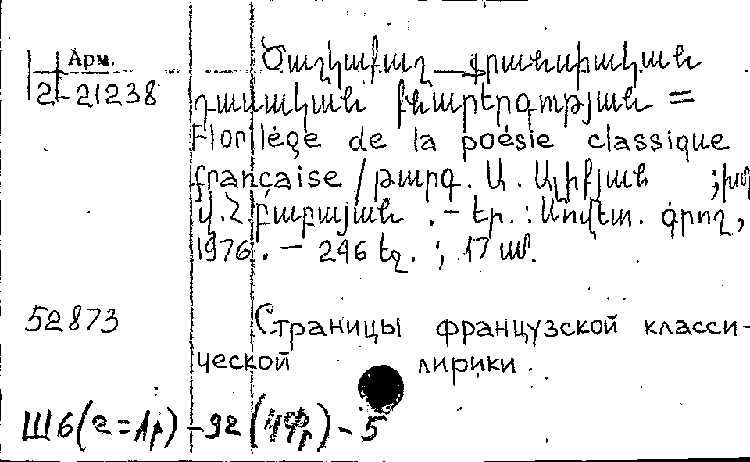 Арм.
2-21238
Ծաղկաքաղ ֆրանսիական
դասական բանաստեղծության =
Florilège de la poésie classique
française / թարգ. Ա. Ալիքյան ; խմ
Վ. Հ. Բաբայան . – Եր. : Սովետ. գրող,
1976 . – 246 էջ. ; 17 սմ.
52873
Страницы французской класси-
ческой лирики .
Ш6(2=Ар)-92(4Фр)-5